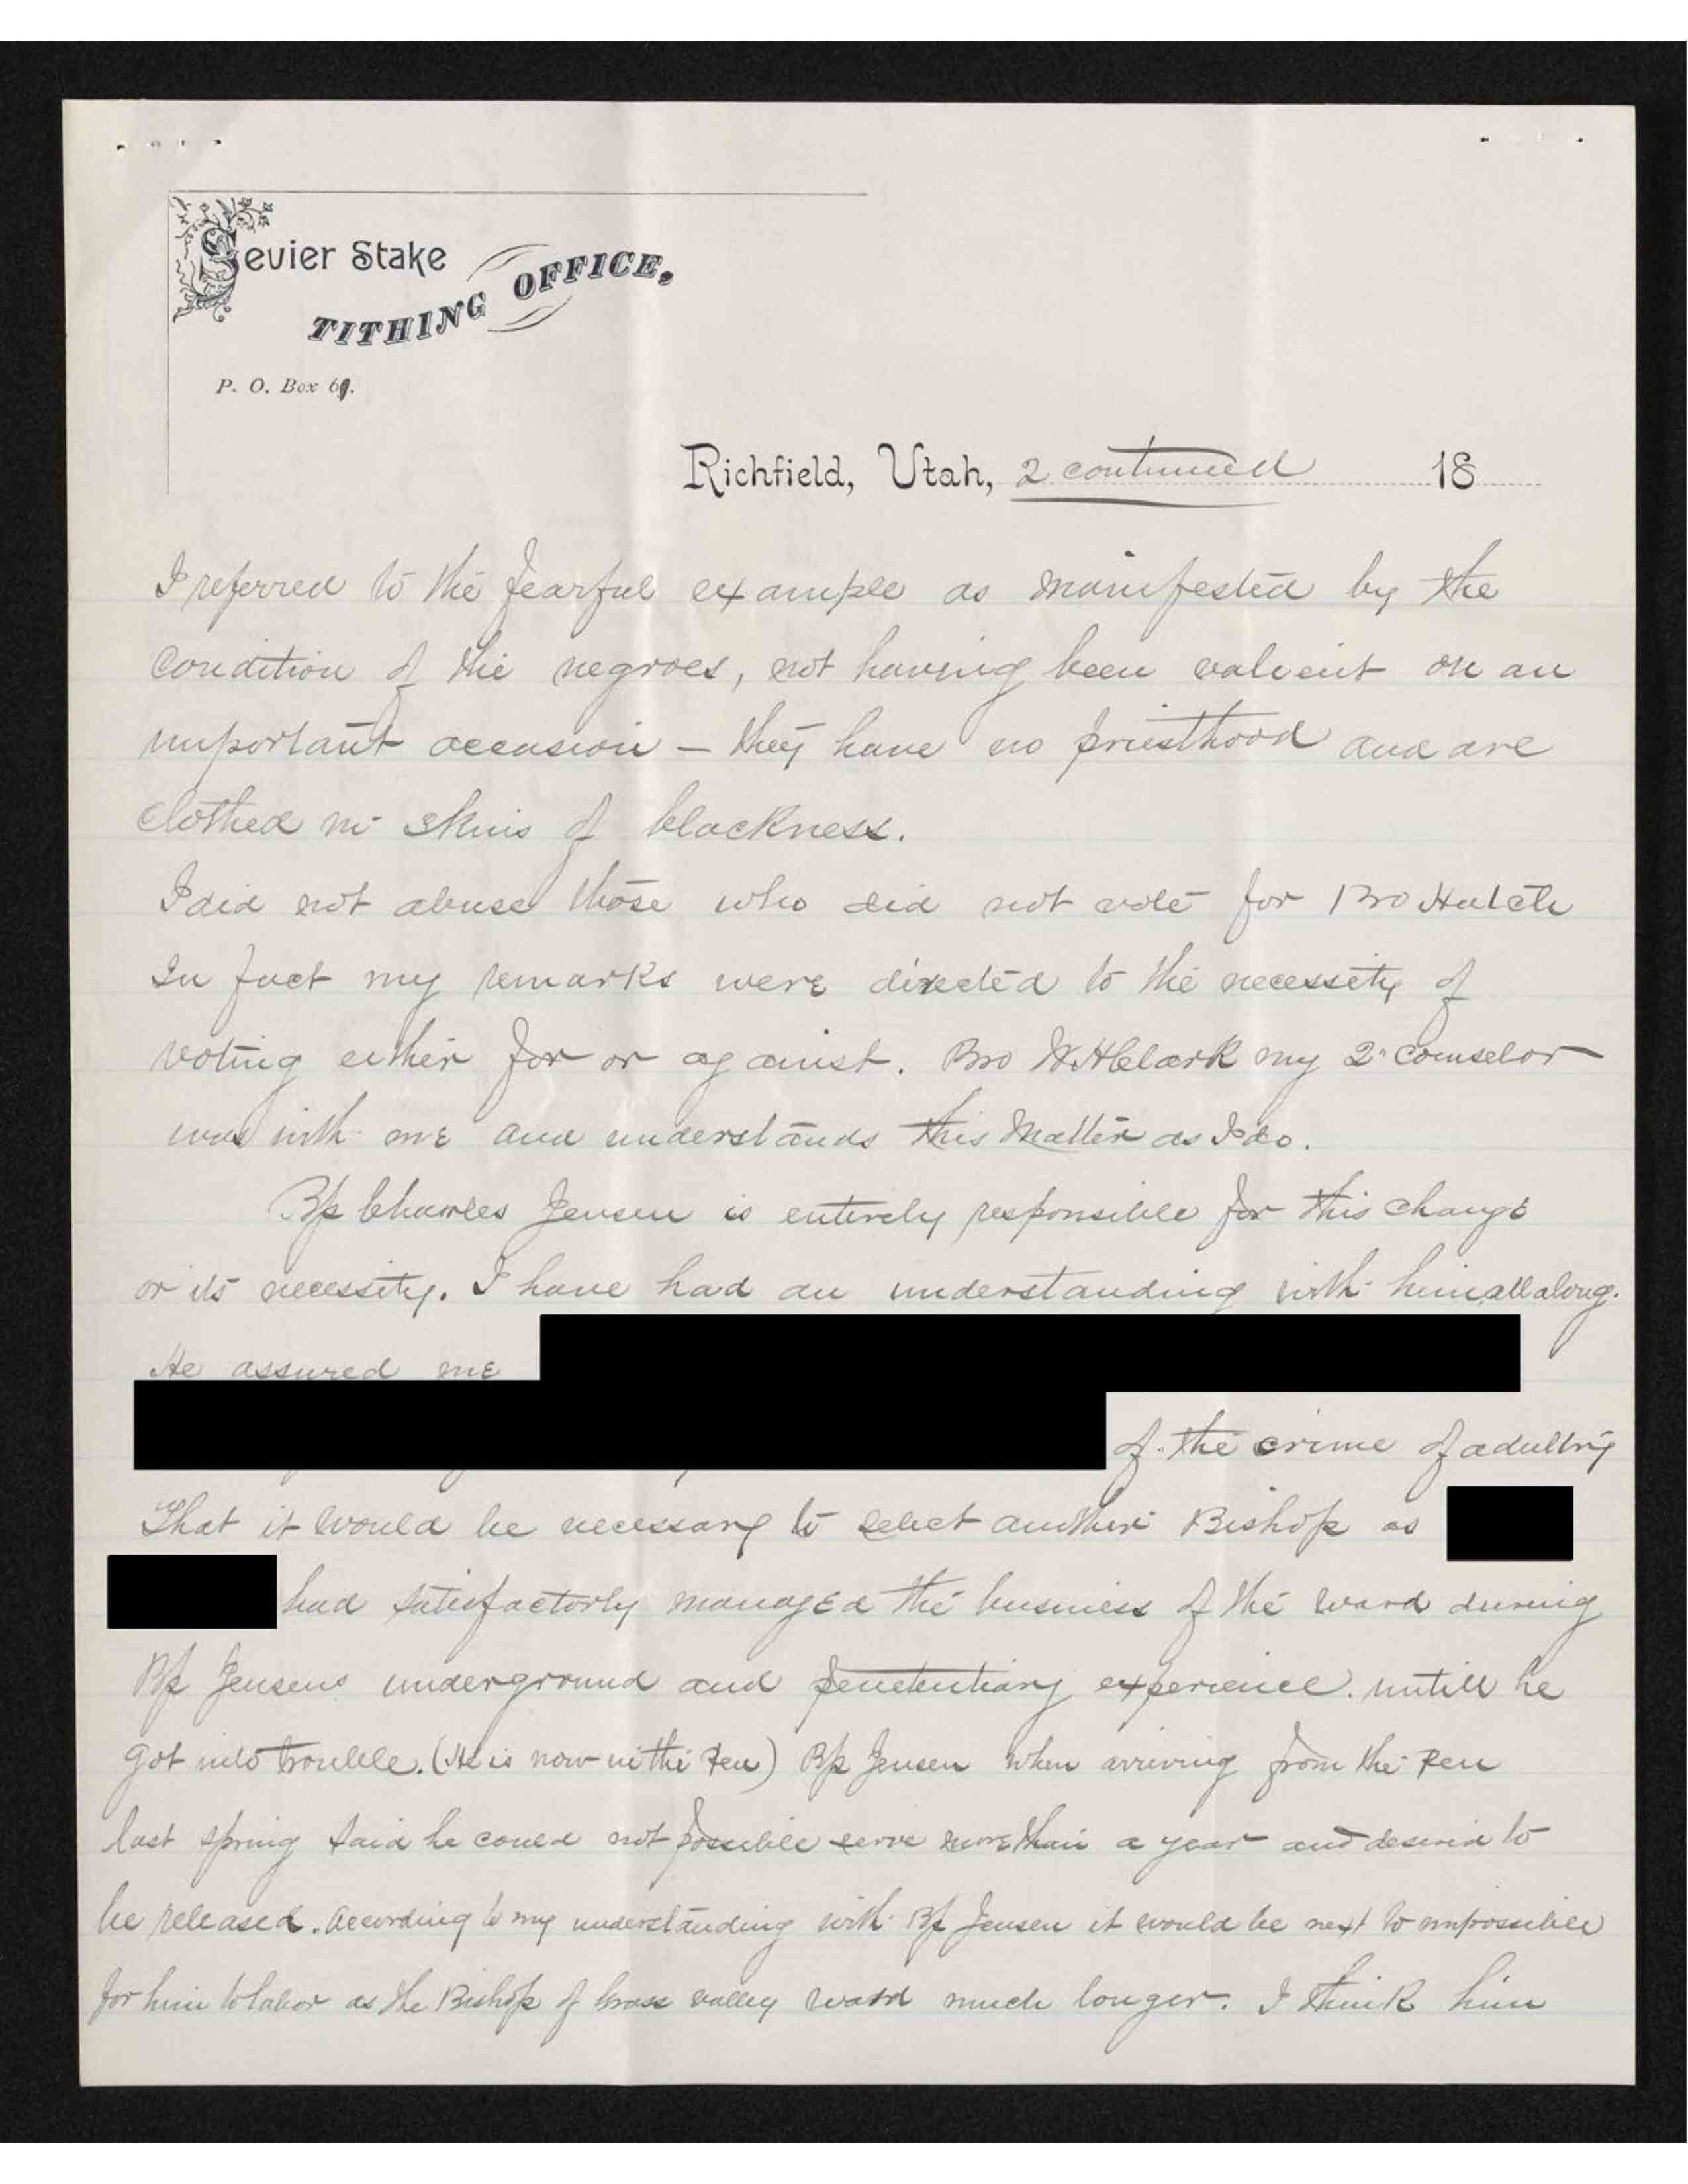 Sevier Stake
TITHING OFFICE,
P. O. Box 69.
Richfield, Utah, 2 continued 18
I referred to the fearful example as manifested by the
condition of the negroes, not having been valient on an
important occasion – they have no priesthood and are
clothed in skins of blackness.
I did not abuse those who did not vote for Bro Hatch
In fact my remarks were directed to the necessity of
voting either for or against. Bro W.H.Clark my 2" counselor
was with me and understands this matter as I do.
Bp Charles Jensen is entirely responsible for this change
or its necessity. I have had an understanding with him all along.
He assured me
of the crime of adultry
That it would be necessary to select another Bishop as
had satisfactorly managed the business of the ward during
Bp Jensens underground and penetentiary experience. untill he
got into trouble. (He is now in the Pen) Bp Jensen when arriving from the Pen
last spring said he could not possible serve more than a year and desired to
be released. According to my understanding with Bp Jensen it would be next to impossible
for him to labor as the Bishop of Grass valley ward much longer. I think him